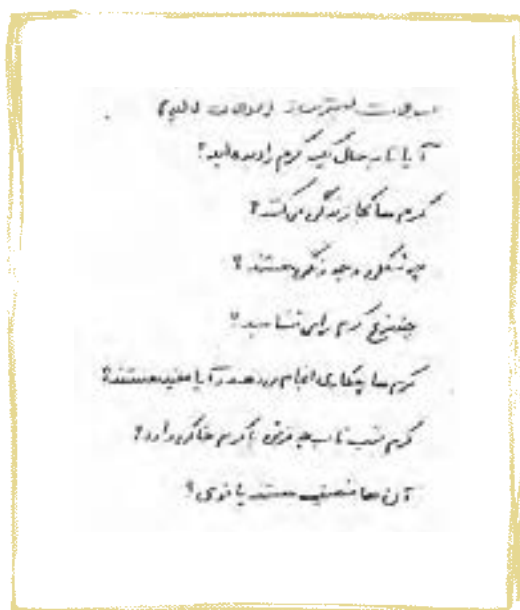 سوالات
آیا تا به حال یک کرم را دیده‌اید؟
کرم ها کجا زندگی می‌کنند؟
چه شکلی و چه رنگی هستند؟
چند نوع کرم را می‌شناسید؟
کرم ها چکاری انجام می‌دهند آیا مفید هستند؟
کرم شب تاب چه فرقی با کرم خاکی دارد؟
آن ها ضعیف هستند یا قوی؟